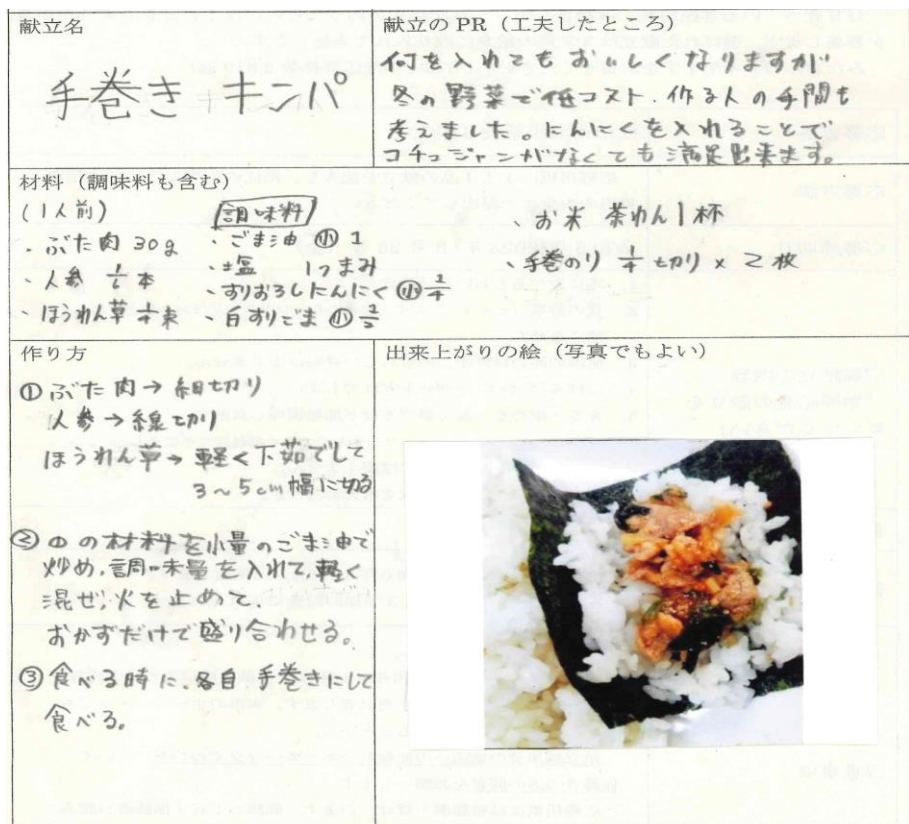 献立名
手巻き キンパ
献立のPR（工夫したところ）
何を入れてもおいしくなりますが
冬の野菜で低コスト・作る人の手間も
考えました。にんにくを入れることで
コチュジャンがなくても満足出来ます。
材料（調味料も含む）
(1人前)
・ぶた肉 30g
・人参 本
・ほうれん草 束
調味料
・ごま油 小 1
・塩 1つまみ
・すりおろしにんにく 小
・白すりごま 小
・お米 茶わん1杯
・手巻のり 1/4切り×2枚
作り方
① ぶた肉→細切り
人参→線切り
ほうれん草→軽く下茹でして
3〜5cm幅に切る
② ①の材料を小量のごま油で
炒め、調味量を入れて、軽く
混ぜ、火を止めて、
おかずだけで盛り合わせる。
③ 食べる時に、各自、手巻きにして
食べる。
出来上がりの絵（写真でもよい）